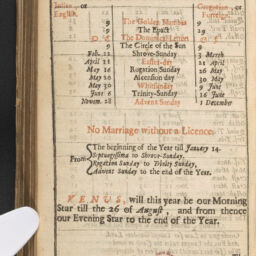 Julian, or English. Gregorian or Foreign.
9 The Golden Number 9
9 The Epact
D The Dominical Letter
9 The Circle of the Sun 9
Feb. 22 Shrove-Sunday 3 March
April 11 Easter-day
May 16 Rogation Sunday
May 20 Ascension day
May 30 Whitsunday 9 June
June 6 Trinity-Sunday 16 June
Novem. 28 Advent Sunday 1 December
No Marriage without a Licence.
From
The beginning of the Year till January 14.
Septuagesima to Shrove-Sunday.
Rogation Sunday to Trinity Sunday,
Advent Sunday to the end of the Year.
VENUS, will this year be our Morning
Star till the 26 of August, and from thence
our Evening Star to the end of the Year.